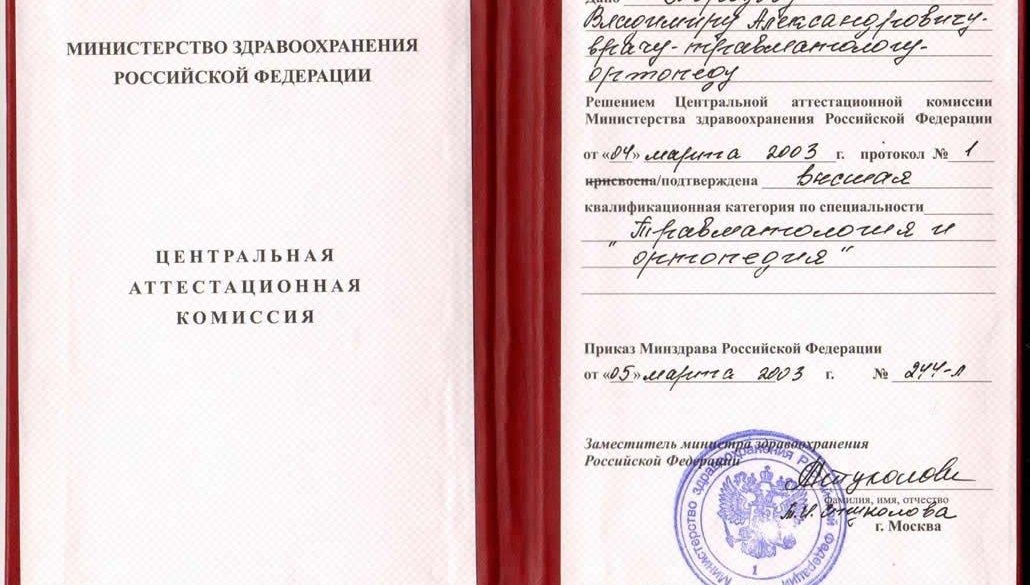 МИНИСТЕРСТВО ЗДРАВООХРАНЕНИЯ
РОССИЙСКОЙ ФЕДЕРАЦИИ
ЦЕНТРАЛЬНАЯ
АТТЕСТАЦИОННАЯ
КОМИССИЯ
Дано
Владимиру Александровичу-
врачу-травматологу-
ортопеду
Решением Центральной аттестационной комиссии
Министерства здравоохранения Российской Федерации
от «04» марта 2003 г. протокол № 1
присвоена/подтверждена высшая
квалификационная категория по специальности
"Травматология и
ортопедия"
Приказ Минздрава Российской Федерации
от «05» марта 2003 г. № 244-л
Заместитель министра здравоохранения
Российской Федерации
фамилия, имя, отчество
г. Москва
Министерство здравоохранения Российской Федерации
1